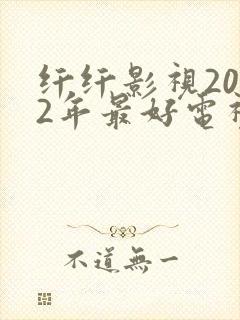 纤纤影視20
2年最好電視
不道無一